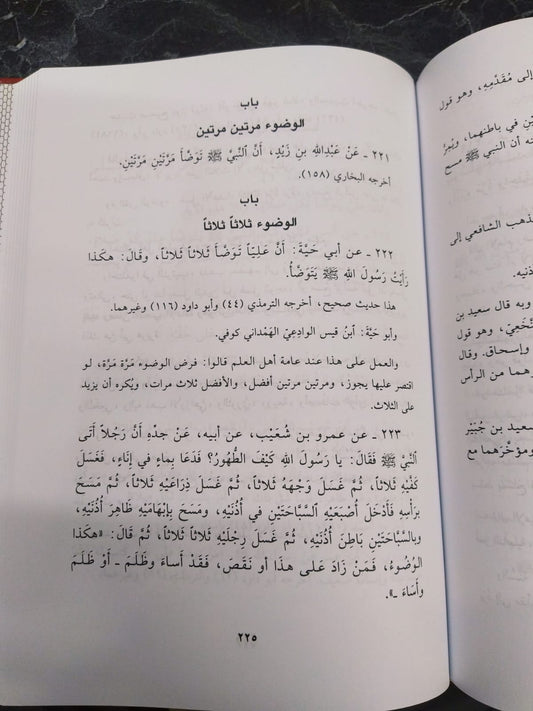 باب
الوضوء مرتين مرتين
٢٢١ ـ عَنْ عَبْدِاللهِ بنِ زَيْدٍ، أَنَّ النَّبِيَّ ﷺ تَوَضَّأَ مَرَّتَيْنِ مَرَّتَيْنِ.
أخرجه البخاري (١٥٨).
باب
الوضوء ثلاثاً ثلاثاً
٢٢٢ ـ عن أبي حَيَّةَ: أَنَّ عَلِيّاً تَوَضَّأَ ثَلاثاً ثَلاثاً، وقَالَ: هكَذا
رَأَيْتُ رَسُولَ اللهِ ﷺ يَتَوَضَّأُ.
هذا حديث صحيح، أخرجه الترمذي (٤٤) وأبو داود (١١٦) وغيرهما.
وأبو حَيَّةَ: ابنُ قيس الوادِعِيّ الهَمْداني كوفي.
والعمل على هذا عند عامة أهل العلم قالوا: فرض الوضوء مَرَّة مَرَّة، لو
اقتصر عليها يجوز، ومرتين مرتين أفضل، والأفضل ثلاث مرات، ويُكره أن يزيد
على الثلاث.
٢٢٣ ـ عن عمرو بن شُعَيْب، عن أبيه، عَنْ جدِّهِ أَنَّ رَجُلاً أَتَى
النَّبِيَّ ﷺ فَقَالَ: يا رَسُولَ اللهِ كَيْفَ الطُّهُورُ؟ فَدَعَا بِماءٍ في إناءٍ، فَغَسَلَ
كَفَّيْهِ ثَلاثاً، ثُمَّ غَسَلَ وَجْهَهُ ثَلاثاً، ثُمَّ غَسَلَ ذِرَاعَيْهِ ثَلاثاً، ثُمَّ مَسَحَ
بَرَأسِهِ فَأَدْخَلَ أُصْبُعَيْهِ السَّبَّاحَتَيْنِ في أُذُنَيْهِ، ومَسَحَ بِإبْهَامَيْهِ ظَاهِرَ أُذُنَيْهِ،
وبالسَّبَّاحَتَيْنِ بَاطِنَ أُذُنَيْهِ، ثُمَّ غَسَلَ رِجْلَيْهِ ثَلاثاً ثَلاثاً، ثُمَّ قَالَ: «هكَذَا
الوُضُوءُ، فَمَنْ زَادَ عَلى هذَا أو نَقَصَ، فَقَدْ أَساءَ وَظَلَمَ ـ أَوْ ظَلَمَ
وأَسَاءَ ـ».
٢٢٥
إلى مُقَدَّمِهِ، وهو قول
يْنِ في باطنهما، ويُمِرُّ
ته أن النبي ﷺ مسح
ذهب الشافعي إلى
ذنيه.
وبه قال سعيد بن
نَّخَعِيّ، وهو قول
وإسحاق. وقال
هما من الرأس
سعيد بن جُبَيْر
ومؤخَّرَهما مع